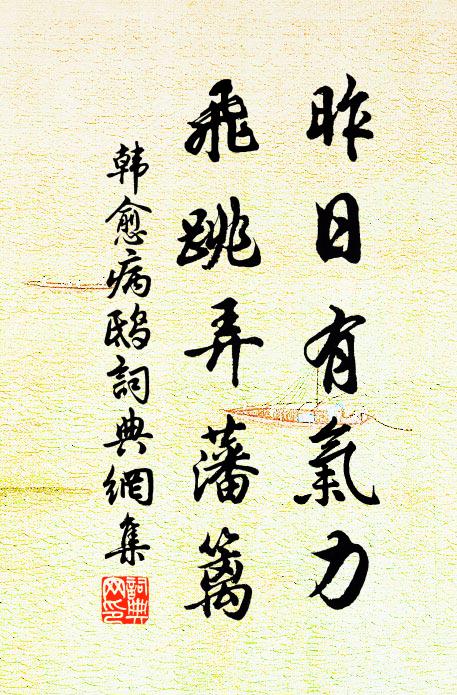 昨日有氣力
飛跳弄藩籬
韩愈病鸱詞典網集
詞典
网印